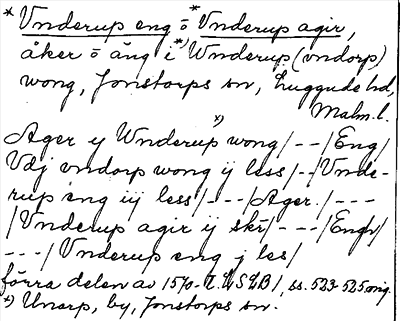 *Vnderup eng = *Vnderup agir,
åker = äng i *) Wnderup (vndorp)
wong, Jonstorps sn, Luggude hd,
Malm. l.
Ager y Wnderup x) wong /--/ Eng /
Vdj vndorp wong ij less /--/ Vnde-
rup eng iij less /---/ Ager. /---
/ Vnderup agir ij skr /---/ Engh /
---/ Vnderup eng j les /
förra delen av 1570-t. LSLB /, ss. 523-525
x) Unarp, by, Jonstorps sn.